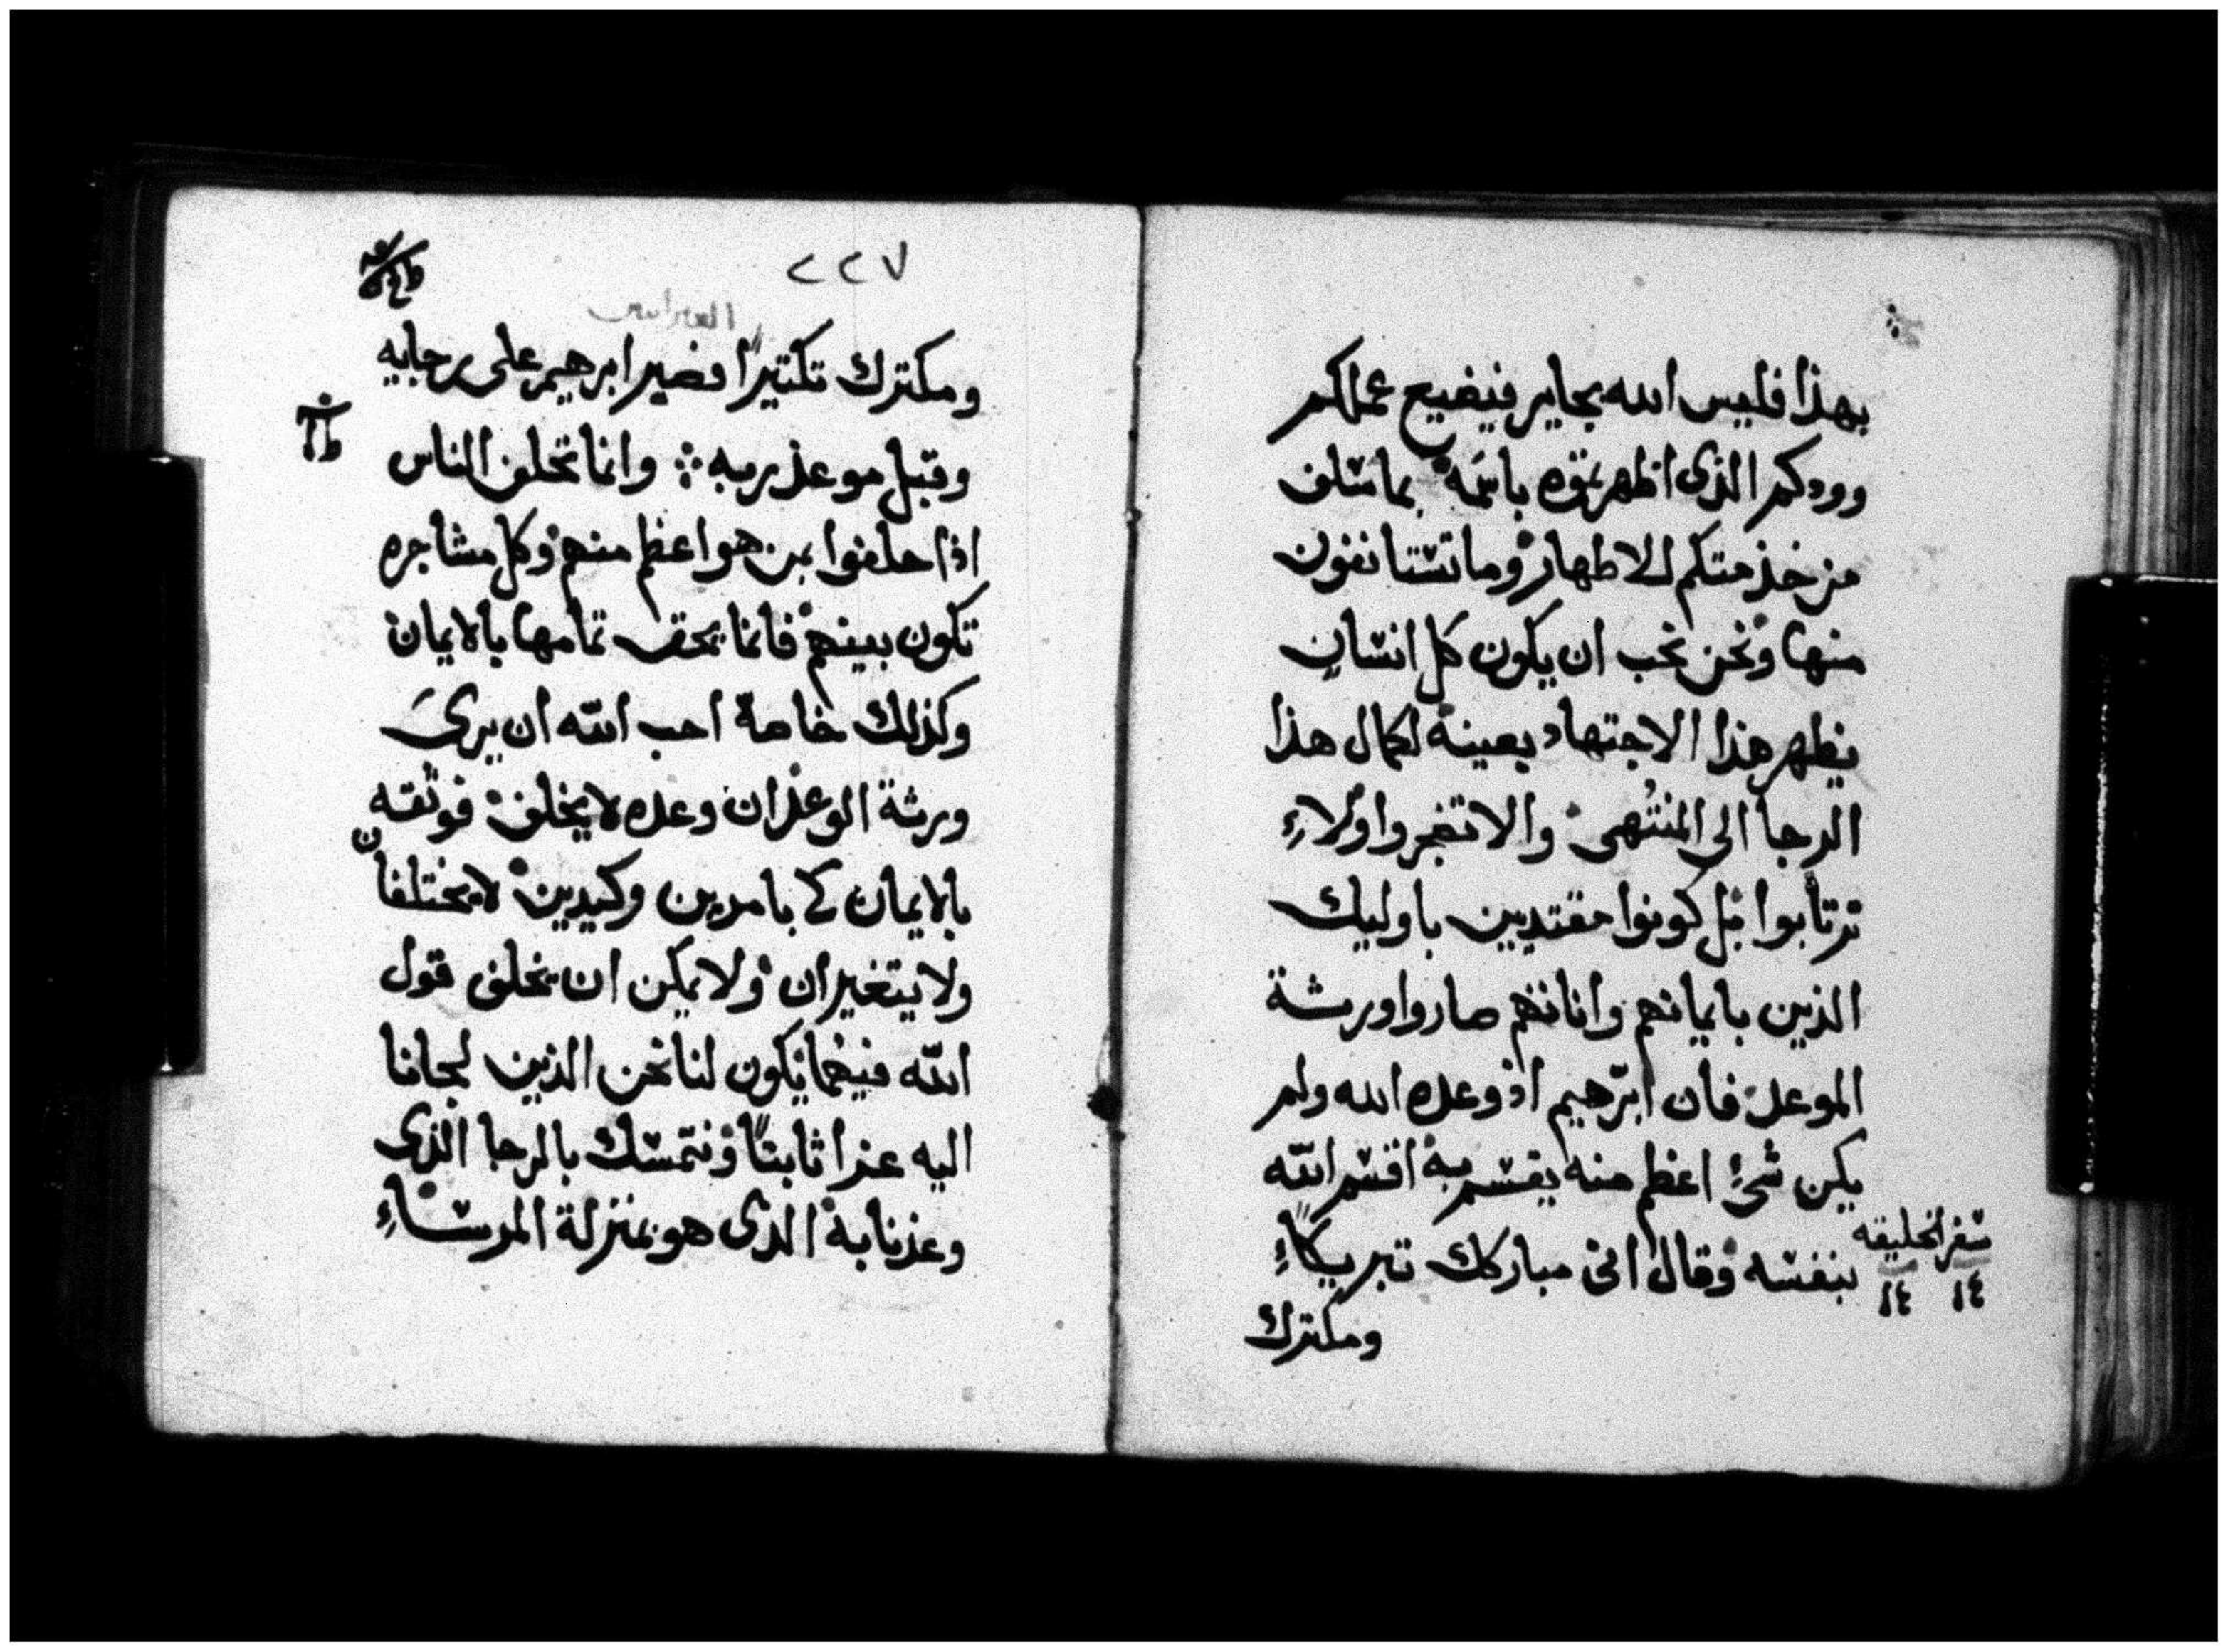 بهذا فليس الله بجاير فيضيع عملكم
وودكم الذى اظهرتموه باسمه بما سلف
من خذمتكم للاطهار وما تستانفون
منها ونحن نحب ان يكون كل انسان
يظهر هذا الاجتهاد بعينه لكمال هذا
الرجا الى المنتهى والا تضجروا ولاءِ
ترتابوا بل كونوا مقتديين باوليك
الذين بايمانهم واناتهم صاروا ورثة
الموعد فان ابرهيم اذ وعده الله ولم
يكن شئ اعظم منه يقسم به اقسم الله
بنفسه وقال انى مباركك تبريكاً
سفر الخليقه
١٤ ١٤
ومكترك
٢٢٧
العبرانيين
ومكترك تكتيراً فصبر ابرهيم على رجايه
وقبل موعد ربه ؞ وانما تحلف الناس
اذا حلفوا بمن هو اعظم منهم وكل مشاجره
تكون بينهم فانما يحقف تمامها بالايمان
وكذلك خاصة احب الله ان يرىَ
ورثة الوعد ان وعده لا يخلف فوثقه
بالايمان كى بامرين وكيدين لا يختلفان
ولا يتغيران ولا يمكن ان يخلف قول
الله فيهما يكون لنا نحن الذين لجانا
اليه عزا ثابتاً ونتمسك بالرجا الذى
وعدنا به الذى هو بمنزلة المرساءِ